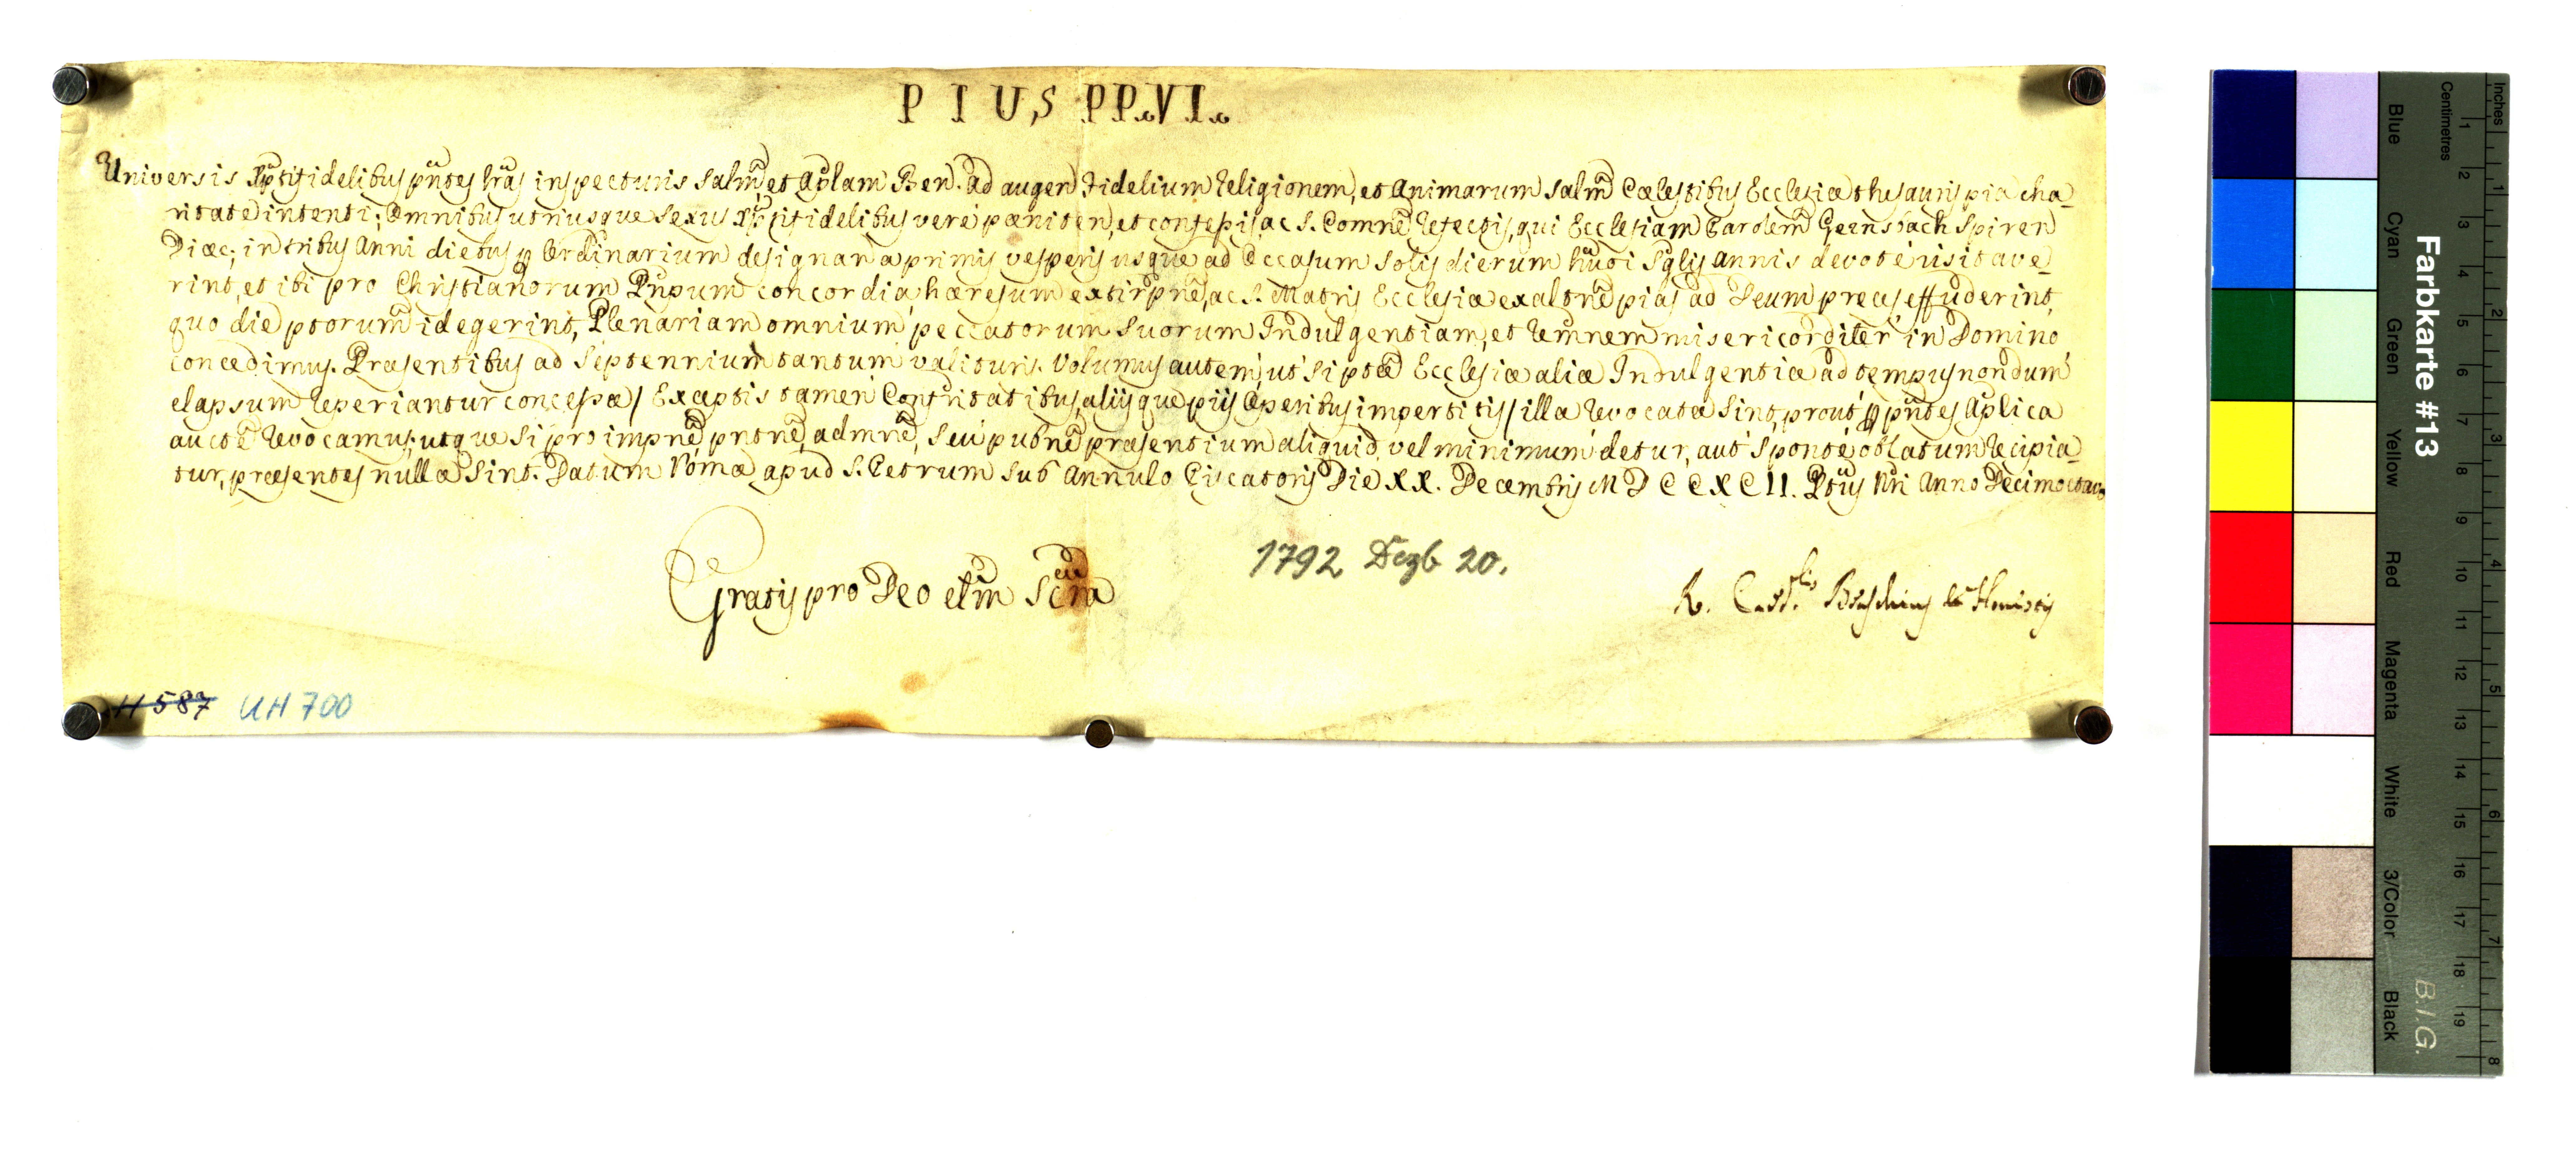 PIUS PP. VI.
Universis Xpti fidelibus pntes lras inspecturis salm, et aplam Ben. Ad augen fidelium religionem, et animarum salm Cælestibus Ecclesiæ thesauris pia cha-
ritate intenti; Omnibus utriusque sexus Xpti fidelibus verè pæniten, et confessis, ac S. Comne refectis, qui Ecclesiam Parolem Gernsbach Spiren
Diæc; in tribus Anni diebus p Ordinarium designan a primis vesperis usque ad Occasum solis dierum hujõi sglis annis devotè visitave-
rint, et ibi pro Christianorum Pnpum concordia, hæresum extirpne, ac S. Matris Ecclesiæ exaltne pias ad Deum preces effuderint,
quo die ptorum id egerint, Plenariam omnium peccatorum suorum Indulgentiam, et remnem misericorditer in Domino
concedimus. Præsentibus ad Septennium tantum valituris. Volumus autem, ut si ptæ Ecclesiæ aliæ Indulgentiæ ad tempus nondum
elapsum reperiantur concessæ / Exceptis tamen Confritatibus, aliisque piis Operibus impertitis / illæ revocatæ sint, prout p pntes Aplica
aucte revocamus; utque si pro impne, pntne, admne, seu pubne præsentium aliquid vel minimum detur, aut sponte oblatum recipia-
tur, præsentes nullæ sint. Datum Romæ apud S. Petrum sub Annulo Piscatoris Die XX. Decembris MDCCXCII. Ptus Nri Anno Decimooctavo
Gratis pro Deo etm Scra
1792 Dezb 20.
R. Card.lis Braschius de Honestis
H 587 UH 700
Inches
Centimetres
Farbkarte #13
B.I.G.
Blue
Cyan
Green
Yellow
Red
Magenta
White
3/Color
Black
1 2 3 4 5 6 7 8 9 10 11 12 13 14 15 16 17 18 19
1 2 3 4 5 6 7 8